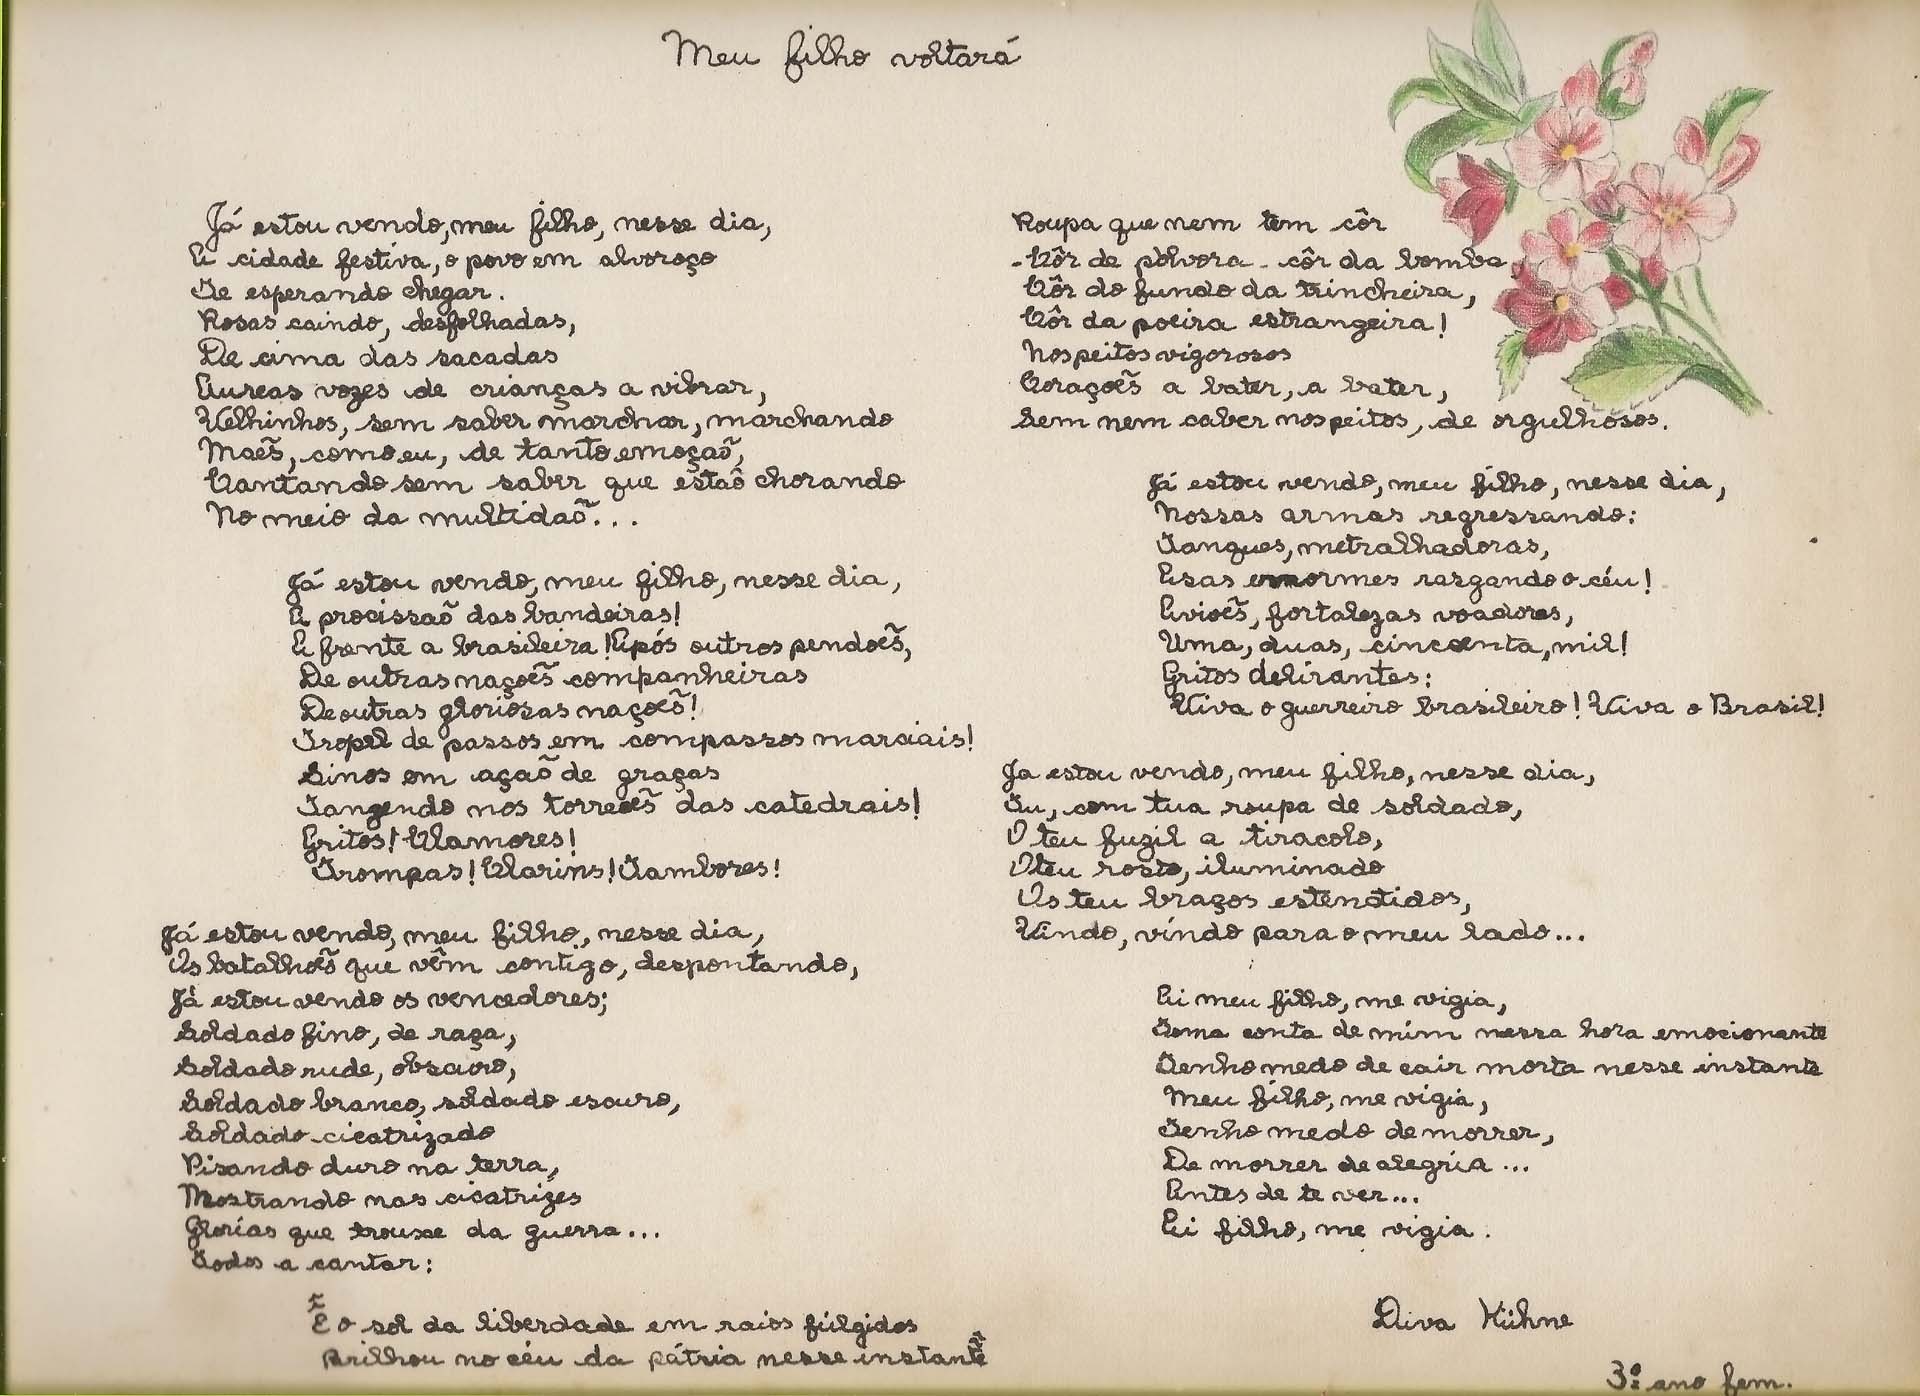 Meu filho voltará
Já estou vendo, meu filho, nesse dia,
A cidade festiva, o povo em alvoroço
Te esperando chegar.
Rosas caindo, desfolhadas,
De cima das sacadas
Aureas vozes de crianças a vibrar,
Velhinhos, sem saber marchar, marchando
Maẽs, como eu, de tanto emoçaõ,
Cantando sem saber que estaõ chorando
No meio da multidaõ...
Já estou vendo, meu filho, nesse dia,
A procissaõ das bandeiras!
A frente a brasileira! Após outros pendoẽs,
De outras naçoẽs companheiras
De outras gloriosas naçoẽs!
Tropel de passos em compassos marciais!
Sinos em açaõ de graças
Tangendo nos torreoẽs das catedrais!
Gritos! Clamores!
Trompas! Clarins! Tambores!
Já estou vendo, meu filho, nesse dia,
Os batalhoẽs que vêm contigo, despontando,
Já estou vendo os vencedores;
Soldado fino, de raça,
Soldado rude, obscuro,
Soldado branco, soldado escuro,
Soldado cicatrizado
Pisando duro na terra,
Mostrando nas cicatrizes
Glorías que trouxe da guerra...
Todos a cantar:
E o sol da liberdade em raios fúlgidos
Brilhou no céu da pátria nesse instante
Roupa que nem tem côr
- Côr de pòlvora - côr da bomba
Côr do fundo da trincheira,
Côr da poeira estrangeira!
Nos peitos vigorosos
Coraçoẽs a bater, a bater,
Sem nem caber nos peitos, de orgulhosos.
Já estou vendo, meu filho, nesse dia,
Nossas armas regressando:
Tanques, metralhadoras,
Asas enormes rasgando o céu!
Avioẽs, fortalezas voadores,
Uma, duas, cincoenta, mil!
Gritos delirantes:
Viva o guerreiro brasileiro! Viva o Brasil!
Ja estou vendo, meu filho, nesse dia,
Tu, com tua roupa de soldado,
O teu fuzil a tiracolo,
O teu rosto, iluminado
Os teu braços estendidos,
Vindo, víndo para o meu lado...
Ai meu filho, me vigia,
Toma conta de mím nessa hora emocionante
Tenho medo de cair morta nesse instante
Meu filho, me vigia,
Tenho medo de morrer,
De morrer de alegria...
Antes de te ver...
Ai filho, me vigia.
Diva Kühne
3º ano fem.